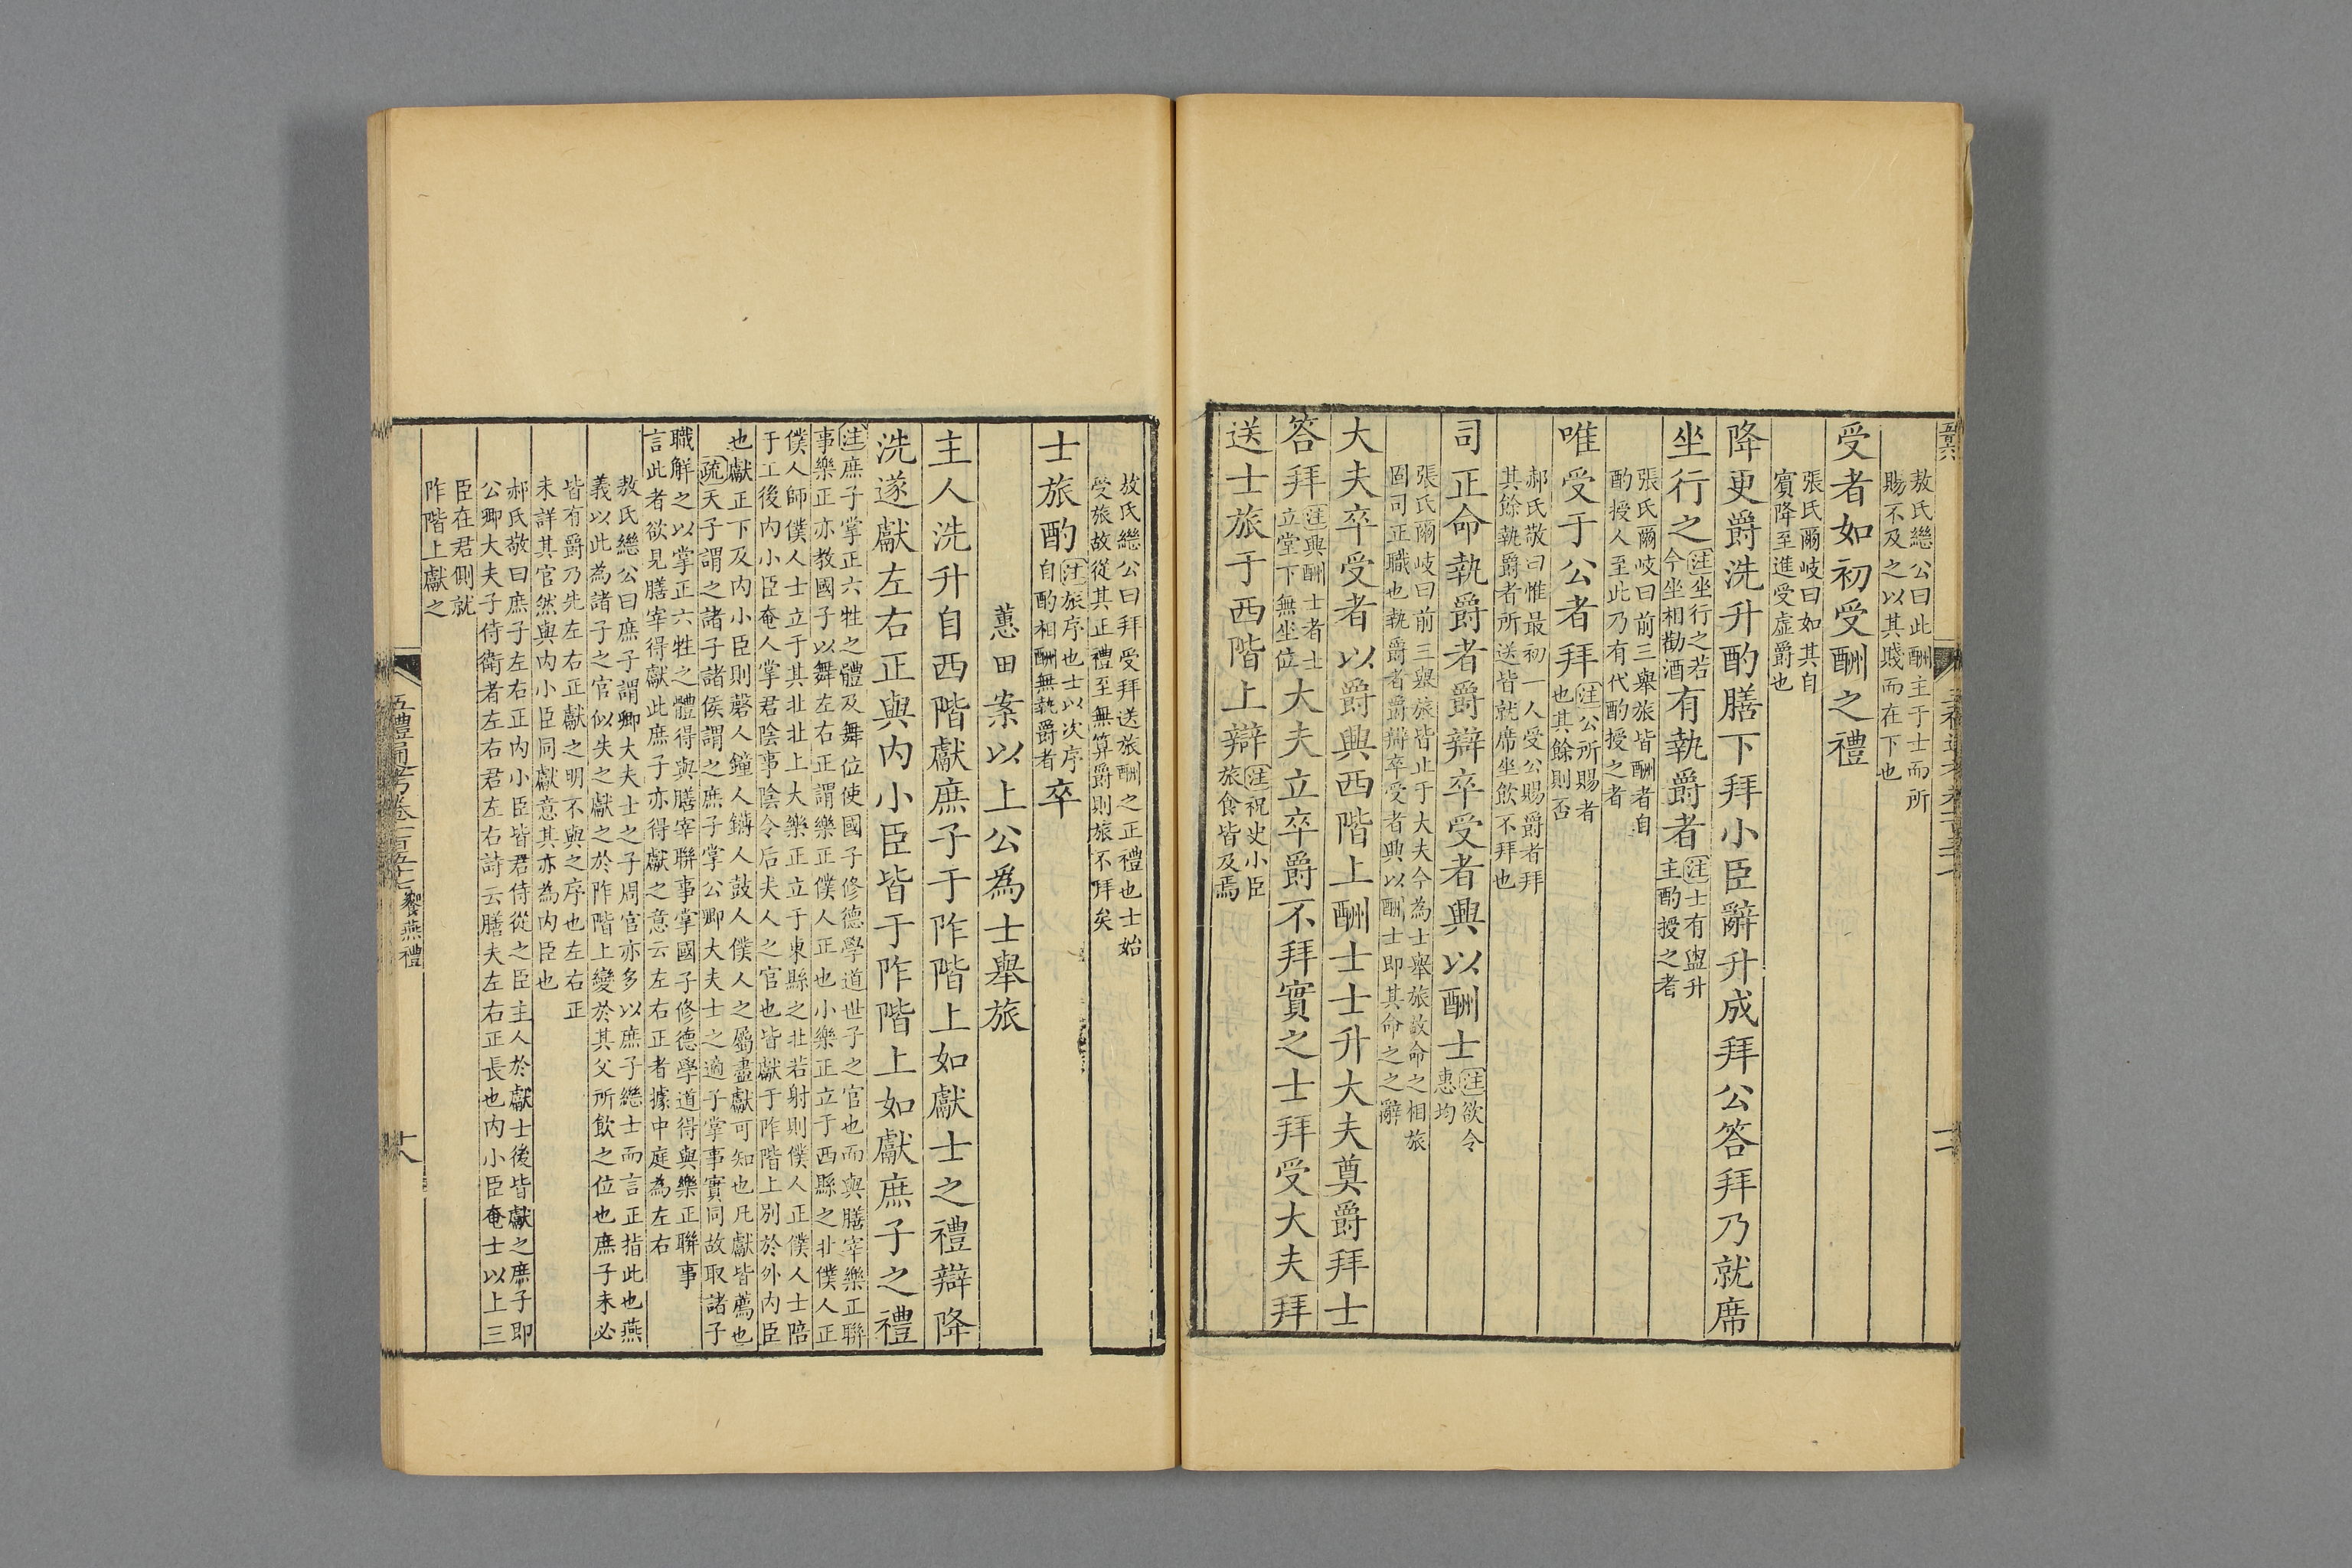 敖氏繼公曰此酬主于士而所
賜不及之以其賤而在下也
受者如初受酬之禮
張氏爾岐曰如其自
賓降至進受虛爵也
降更爵洗升酌膳下拜小臣辭升成拜公答拜乃就席
坐行之注坐行之若今坐相勸酒有執爵者注士有盥升主酌授之者
張氏爾岐曰前三舉旅皆酬者自
酌授人至此乃有代酌授之者
唯受于公者拜注公所賜者也其餘則否
郝氏敬曰惟最初一人受公賜爵者拜
其餘執爵者所送皆就席坐飲不拜也
司正命執爵者爵辯卒受者興以酬士注欲令惠均
張氏爾岐曰前三舉旅皆止于大夫今為士舉旅故命之相旅
固司正職也執爵者爵辯卒受者興以酬士即其命之之辭
大夫卒受者以爵興西階上酬士士升大夫奠爵拜士
答拜注興酬士者士立堂下無坐位大夫立卒爵不拜實之士拜受大夫拜
送士旅于西階上辯注祝史小臣旅食皆及焉
敖氏繼公曰拜受拜送旅酬之正禮也士始
受旅故從其正禮至無算爵則旅不拜矣
士旅酌注旅序也士以次序自酌相酬無執爵者卒
蕙田案以上公為士舉旅
主人洗升自西階獻庶子于阼階上如獻士之禮辯降
洗遂獻左右正與內小臣皆于阼階上如獻庶子之禮
注庶子掌正六牲之體及舞位使國子修德學道世子之官也而與膳宰樂正聯
事樂正亦教國子以舞左右正謂樂正僕人正也小樂正立于西縣之北僕人正
僕人師僕人士立于其北北上大樂正立于東縣之北若射則僕人正僕人士陪
于工後內小臣奄人掌君陰事陰令后夫人之官也皆獻于阼階上別於外內臣
也獻正下及內小臣則磬人鐘人鎛人鼓人僕人之屬盡獻可知也凡獻皆薦也
疏天子謂之諸子諸侯謂之庶子掌公卿大夫士之適子掌事實同故取諸子
職解之以掌正六牲之體得與膳宰聯事掌國子修德學道得與樂正聯事
言此者欲見膳宰得獻此庶子亦得獻之意云左右正者據中庭為左右
敖氏繼公曰庶子謂卿大夫士之子周官亦多以庶子繼士而言正指此也燕
義以此為諸子之官似失之獻之於阼階上變於其父所飲之位也庶子未必
皆有爵乃先左右正獻之明不與之序也左右正
未詳其官然與內小臣同獻意其亦為內臣也
郝氏敬曰庶子左右正內小臣皆君侍從之臣主人於獻士後皆獻之庶子即
公卿大夫子侍衛者左右君左右詩云膳夫左右正長也內小臣奄士以上三
臣在君側就
阼階上獻之
五禮通考卷一百五十七 饗燕禮
十八